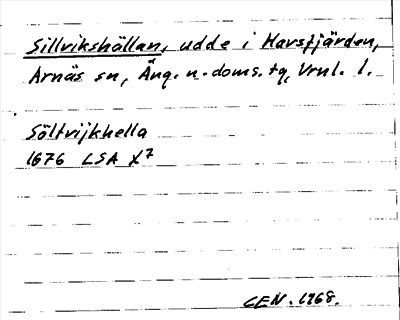 Sillvikshällan, udde i Havsfjärden,
Arnäs sn, Ång. n. doms. tg, Vrnl. l.
Söltvijkhella
1676 LSA χ7
CEN. 1968.